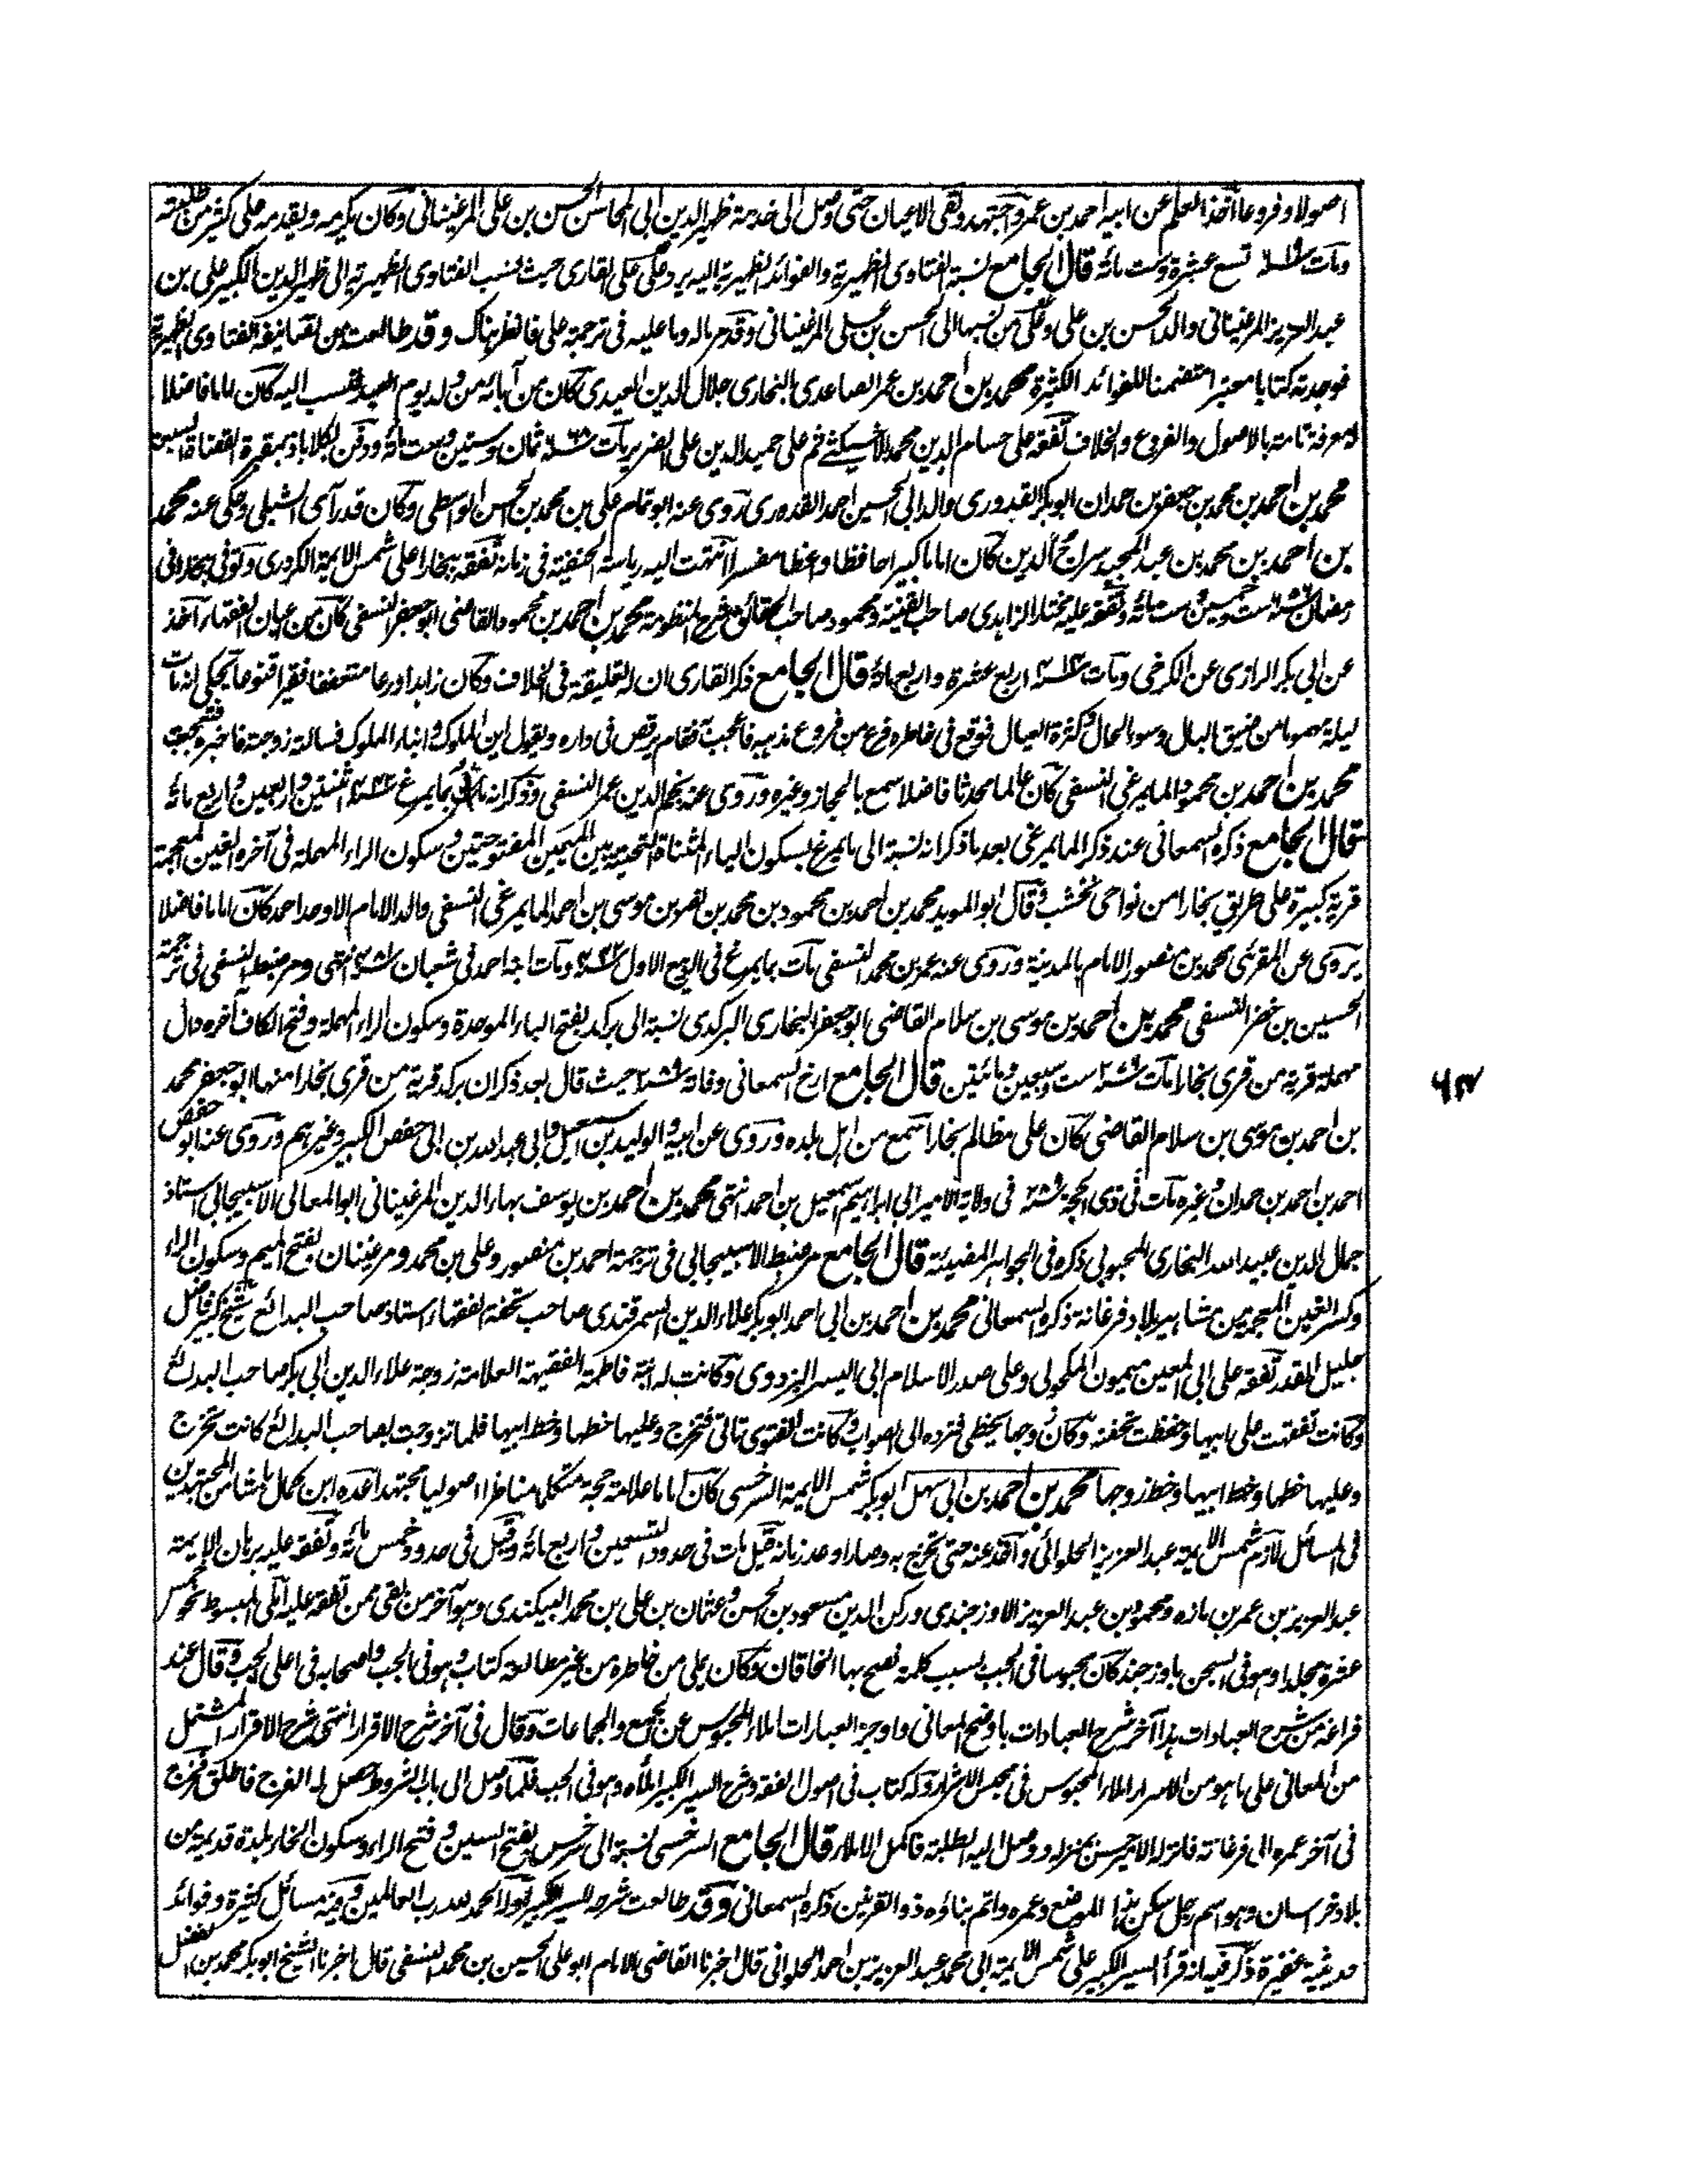 اصولا وفروعا اخذ العلم عن ابيه احمد بن عمر واجتهد ولقى الاعيان حتى وصل الى خدمة ظهير الدين ابى المحاسن الحسن بن على المرغينانى وكان يكرمه ويقدمه على كثير من طلبته
ومات سنة ٦١٩ تسع عشرة وست مائة قال الجامع نسبة الفتاوى الظهيرية والفوائد الظهيرية اليه يرد على على القارى حيث نسب الفتاوى الظهيرية الى ظهير الدين الكبير على بن
عبد العزيز المرغينانى والد الحسن بن على وعلى من نسبها الى الحسن بن على المرغينانى وقد مر ماله وما عليه فى ترجمة على فانظر هناك وقد طالعت من تصانيفه الفتاوى الظهيرية
فوجدته كتابا معتبرا متضمنا للفوائد الكثيرة محمد بن احمد بن عمر الصاعدى البخارى جلال الدين العيدى كان من آبائه من ولد يوم العيد فنسب اليه كان اماما فاضلا
له معرفة تامة بالاصول والفروع والخلاف تفقه على حسام الدين محمد الاخسيكثى ثم على حميد الدين على الضرير مات سنة ٦٦٨ ثمان وستين وست مائة ودفن بكلاباذ بمقبرة القضاة السبعة
محمد بن احمد بن محمد بن جعفر بن حمدان ابو بكر القدورى والد ابى الحسين احمد القدورى روى عنه ابو تمام على بن محمد بن الحسن الواسطى وكان قد رآى الشبلى وحكى عنه محمد
بن احمد بن محمد بن عبد المجيد سراج الدين كان اماما كبيرا حافظا واعظا مفسرا انتهت اليه رياسة الحنفية فى زمانه تفقه ببخارا على شمس الايمة الكردرى وتوفى ببخارا فى
رمضان سنة ٦٥٦ ست وخمسين وست مائة وتفقه عليه مختار الزاهدى صاحب القنية ومحمود صاحب الحقائق شرح المنظومة محمد بن احمد بن محمود القاضى ابو جعفر النسفى كان من اعيان الفقهاء اخذ
عن ابى بكر الرازى عن الكرخى ومات سنة ٤١٤ اربع عشرة واربع مائة قال الجامع ذكر القارى ان له تعليقة فى الخلاف وكان زاهدا ورعا متعففا فقيرا قنوعا يحكى انه بات
ليلة مهموما من ضيق البال وسوء الحال وكثرة العيال فوقع فى خاطره فرع من فروع مذهبه فاعجب به فقام يرقص فى داره ويقول اين الملوك وابناء الملوك فسالته زوجته فاخبر فتعجبت
محمد بن احمد بن محمود المايمرغى النسفى كان عالما محدثا فاضلا سمع بالحجاز وغيره وروى عنه نجم الدين عمر النسفى وذكر انه توفى بمايمرغ سنة ٤٤٢ اثنتين واربعين واربع مائة
قال الجامع ذكره السمعانى عند ذكر المايمرغى بعد ما ذكر انه نسبة الى مايمرغ بسكون الياء المثناة التحتية بين الميمين المفتوحتين وسكون الراء المهملة فى آخره الغين المعجمة
قرية كبيرة على طريق بخارا من نواحى نخشب وقال ابو المويد محمد بن احمد بن محمود بن محمد بن نصر بن موسى بن احمد المايمرغى النسفى والد الامام الاوحد احمد كان اماما فاضلا
يروى عن المقرئى محمد بن منصور الامام بالمدينة وروى عنه عمر بن محمد النسفى مات بمايمرغ فى الربيع الاول ومات ابنه احمد فى شعبان انتهى ومر ضبط النسفى فى ترجمة
الحسين بن خضر النسفى محمد بن احمد بن موسى بن سلام القاضى ابو جعفر البخارى البركدى نسبة الى بركد بفتح الباء الموحدة وسكون الراء المهملة وفتح الكاف آخره دال
مهملة قرية من قرى بخارا مات سنة ست وسبعين ومائتين قال الجامع ارخ السمعانى وفاته سنة ٢٨٩ حيث قال بعد ذكر ان بركد قرية من قرى بخارا منها ابو جعفر محمد
بن احمد بن موسى بن سلام القاضى كان على مظالم بخارا سمع من اهل بلده وروى عن ابيه والوليد بن اسمعيل وابى عبد الله بن ابى حفص الكبير وغيرهم وروى عنه ابو حفص
احمد بن احمد بن حمدان وغيره مات فى ذى الحجة سنة ٢٨٩ فى ولاية الامير ابى ابراهيم اسمعيل بن احمد انتهى محمد بن احمد بن يوسف بهاء الدين المرغينانى ابو المعالى الاسبيجابى استاذ
جمال الدين عبيد الله البخارى المحبوبى ذكره فى الجواهر المضيئة قال الجامع مر ضبط الاسبيجابى فى ترجمة احمد بن منصور وعلى بن محمد ومرغينان بفتح الميم وسكون الراء
وكسر الغين المعجمة من مشاهير بلاد فرغانة ذكره السمعانى محمد بن احمد بن ابى احمد ابو بكر علاء الدين السمرقندى صاحب تحفة الفقهاء استاذ صاحب البدائع شيخ كبير فاضل
جليل القدر تفقه على ابى المعين ميمون المكحولى وعلى صدر الاسلام ابى اليسر البزدوى وكانت له ابنة فاطمة الفقيهة العلامة زوجة علاء الدين ابى بكر صاحب البدائع
وكانت تفقهت على ابيها وحفظت تحفته وكان زوجها يخطى فترده الى الصواب وكانت الفتوى تاتى فتخرج وعليها خطها وخط ابيها فلما تزوجت بصاحب البدائع كانت تخرج
وعليها خطها وخط ابيها وخط زوجها محمد بن احمد بن ابى سهل ابو بكر شمس الايمة السرخسى كان اماما علامة حجة متكلما مناظرا اصوليا مجتهدا عده ابن كمال باشا من المجتهدين
فى المسائل لازم شمس الايمة عبد العزيز الحلوانى واخذ عنه حتى تخرج به وصار اوحد زمانه قيل مات فى حدود التسعين واربع مائة وقيل فى حدود خمس مائة وتفقه عليه برهان الايمة
عبد العزيز بن عمر بن مازه ومحمود بن عبد العزيز الاوزجندى وركن الدين مسعود بن الحسن وعثمان بن على بن محمد البيكندى وهو آخر من بقى ممن تفقه عليه املى المبسوط نحو خمس
عشرة مجلدا وهو فى السجن باوزجند كان محبوسا فى الجب بسبب كلمة نصح بها الخاقان وكان يملى من خاطره من غير مطالعة كتاب وهو فى الجب واصحابه فى اعلى الجب وقال عند
فراغه من شرح العبادات هذا آخر شرح العبادات باوضح المعانى واوجز العبارات املاء المحبوس عن الجمع والجماعات وقال فى آخر شرح الاقرار انتهى شرح الاقرار المشتمل
من المعانى على ما هو من الاسرار املاء المحبوس فى محبس الاشرار وله كتاب فى اصول الفقه وشرح السير الكبير املاه وهو فى الجب فلما وصل الى باب الشروط حصل له الفرج فاطلق فخرج
فى آخر عمره الى فرغانة فانزله الامير حسن بمنزله ووصل اليه الطلبة فاكمل الاملاء قال الجامع السرخسى نسبة الى سرخس بفتح السين وفتح الراء وسكون الخاء بلدة قديمة من
بلاد خراسان وهو اسم رجل سكن هذا الموضع وعمره واتم بناؤه ذو القرنين ذكره السمعانى وقد طالعت شرح السير الكبير اوله الحمد لله رب العالمين وفيه مسائل كثيرة وفوائد
حديثية غفيرة ذكر فيه انه قرأ السير الكبير على شمس الايمة ابى محمد عبد العزيز بن احمد الحلوانى قال اخبرنا القاضى الامام ابو على الحسين بن محمد النسفى قال اخبرنا الشيخ ابو بكر محمد بن الفضل